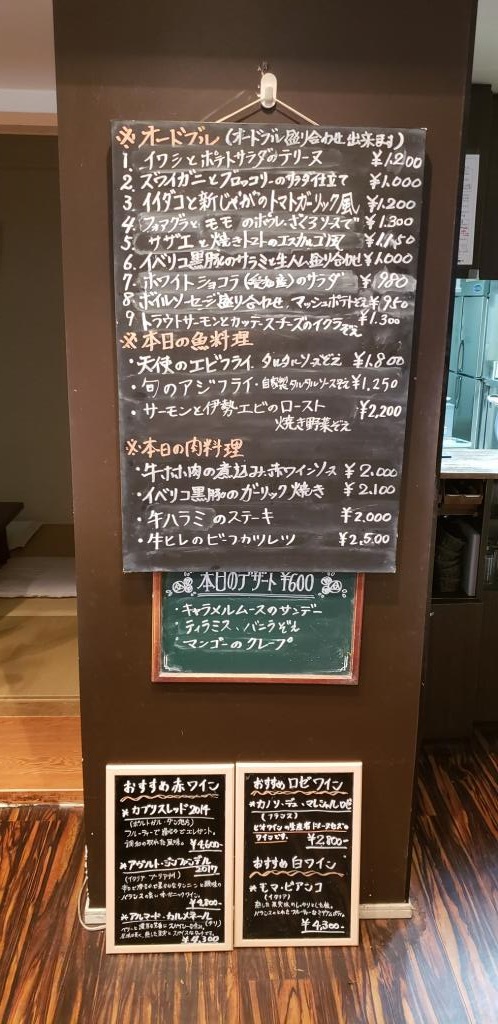 ※オードブル(オードブル盛り合わせ出来ます)
1. イワシとポテトサラダのテリーヌ ¥1.200
2. ズワイガニとブロッコリーのサラダ仕立て ¥1.000
3 イイダコと新じゃがのトマトガーリック風 ¥1.200
4. フォアグラとモモのポワレ ざくろソースで ¥1.300
5 サザエと焼きトマトのエスカルゴ風 ¥1.150
6 イベリコ黒豚のサラミと生ハム盛り合わせ ¥1.000
7 ホワイトショコラ(愛知産)のサラダ ¥980
8 ボイルソーセージ盛り合わせ マッシュポテトぞえ ¥950
9 トラウトサーモンとカッテースチーズのイクラぞえ ¥1.300
※本日の魚料理
・天使のエビフライ タルタルソースぞえ ¥1.800
・旬のアジフライ・自家製タルタルソースぞえ ¥1,250
・サーモンと伊勢エビのロースト
焼き野菜ぞえ ¥2,200
※本日の肉料理
・牛ホホ肉の煮込み赤ワインソース ¥2.000
・イベリコ黒豚のガーリック焼き ¥2.100
・牛ハラミのステーキ ¥2,000
・牛ヒレのビーフカツレツ ¥2,500
本日のデザート ¥600
・キャラメルムースのサンデー
・ティラミス、バニラぞえ
・マンゴーのクレープ
おすすめ赤ワイン
※カブリスレッド2014
(ポルトガル・ダン地方)
フルーティーで エレガント。
調和の取れた風味。
¥4600-
2017
(イタリア プーリア州)
¥4,800-
※アルマード・カルメネール
(チリ)
¥4,300
おすすめロゼワイン
※カノン・デュ・マレシャルロゼ
(フランス)
ワインです。 ¥2,800-
おすすめ白ワイン
※モマ・ビアンコ
(イタリア)
¥4,300-